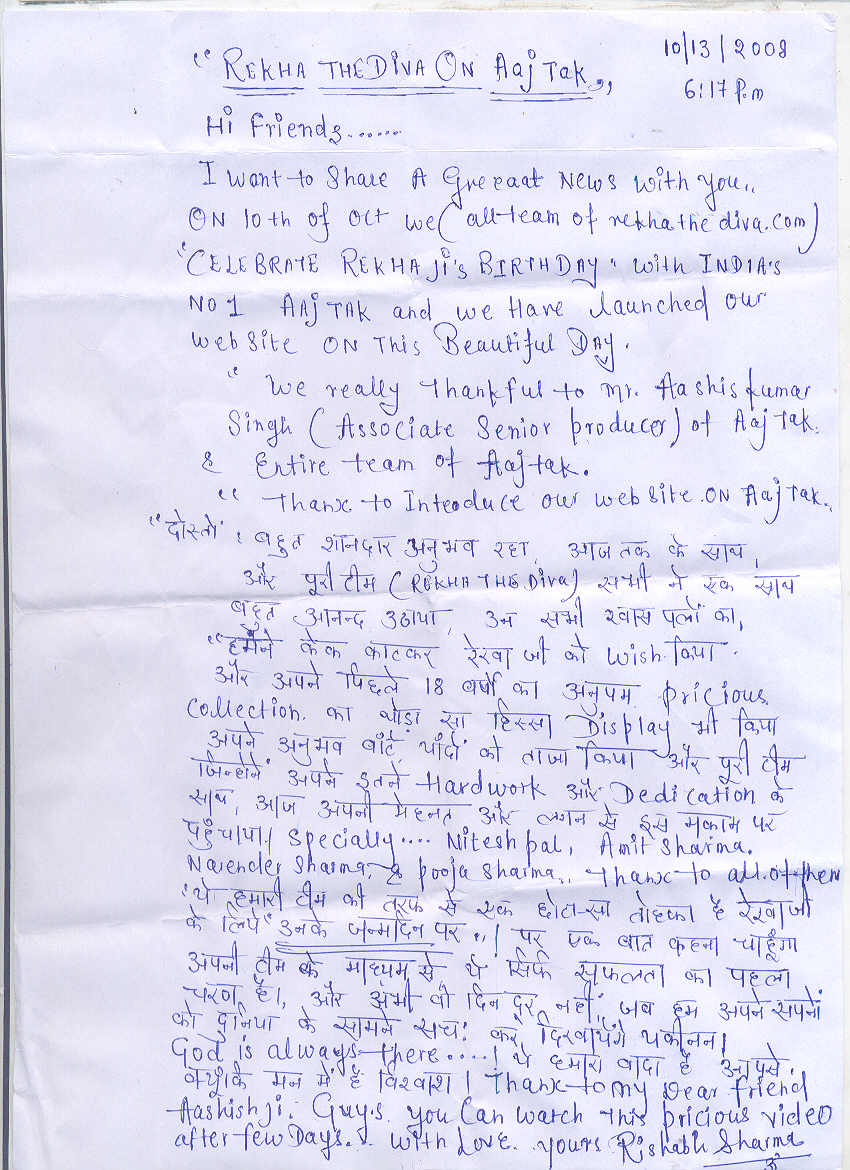 "REKHA THE DIVA ON Aaj Tak,,
10/13/2008
6:17 P.m
Hi Friends......
I Want to Share A Greeaat News With You..
ON 10th of Oct we (all-team of rekhathediva.com)
"CELEBRATE REKHA Ji's BIRTHDAY" with INDIA's
NO 1 AAJ TAK and we Have launched our
website ON This Beautiful DAY.
" We really Thankful to Mr. Aashis kumar
Singh (Associate Senior producer) of Aaj Tak.
& Entire team of Aajtak.
" Thanx to Inteoduce our website ON Aaj Tak..
"दोस्तो" : बहुत शानदार अनुभव रहा, आज तक के साथ,
और पूरी टीम (REKHA THE Diva) सभी ने एक साथ
बहुत आनन्द उठाया, उन सभी खास पलों का,
"हमने केक काटकर रेखा जी को wish किया.
और अपने पिछले 18 वर्षो का अनुपम pricious
Collection. का थोड़ा सा हिस्सा Display भी किया
अपने अनुभव बाँटे, यादों को ताजा किया और पूरी टीम
जिन्होनें अपने इतने Hardwork और Dedication के
साथ, आज अपनी मेहनत और लगन से इस मकाम पर
पहुँचाया। specially.... Nitesh pal, Amit Sharma.
Narender Sharma, & pooja sharma.. Thanx to all of them
"ये हमारी टीम की तरफ से एक छोटा-सा तोहफा है रेखा जी
के लिये उनके जन्मदिन पर..! पर एक बात कहना चाहूँगा
अपनी टीम के माध्यम से ये सिर्फ सफलता का पहला
चरण है।, और अभी वो दिन दूर नहीं, जब हम अपने सपनों
को दुनिया के सामने सच! कर दिखायेंगे यकीनन।
God is always there....! ये हमारा वादा है आपसे.
क्यूँकि मन में है विश्वाश। Thanx to my Dear friend
Aashish ji. Guys. you Can watch this pricious video
after few Days... With Love.. yours Rishabh Sharma